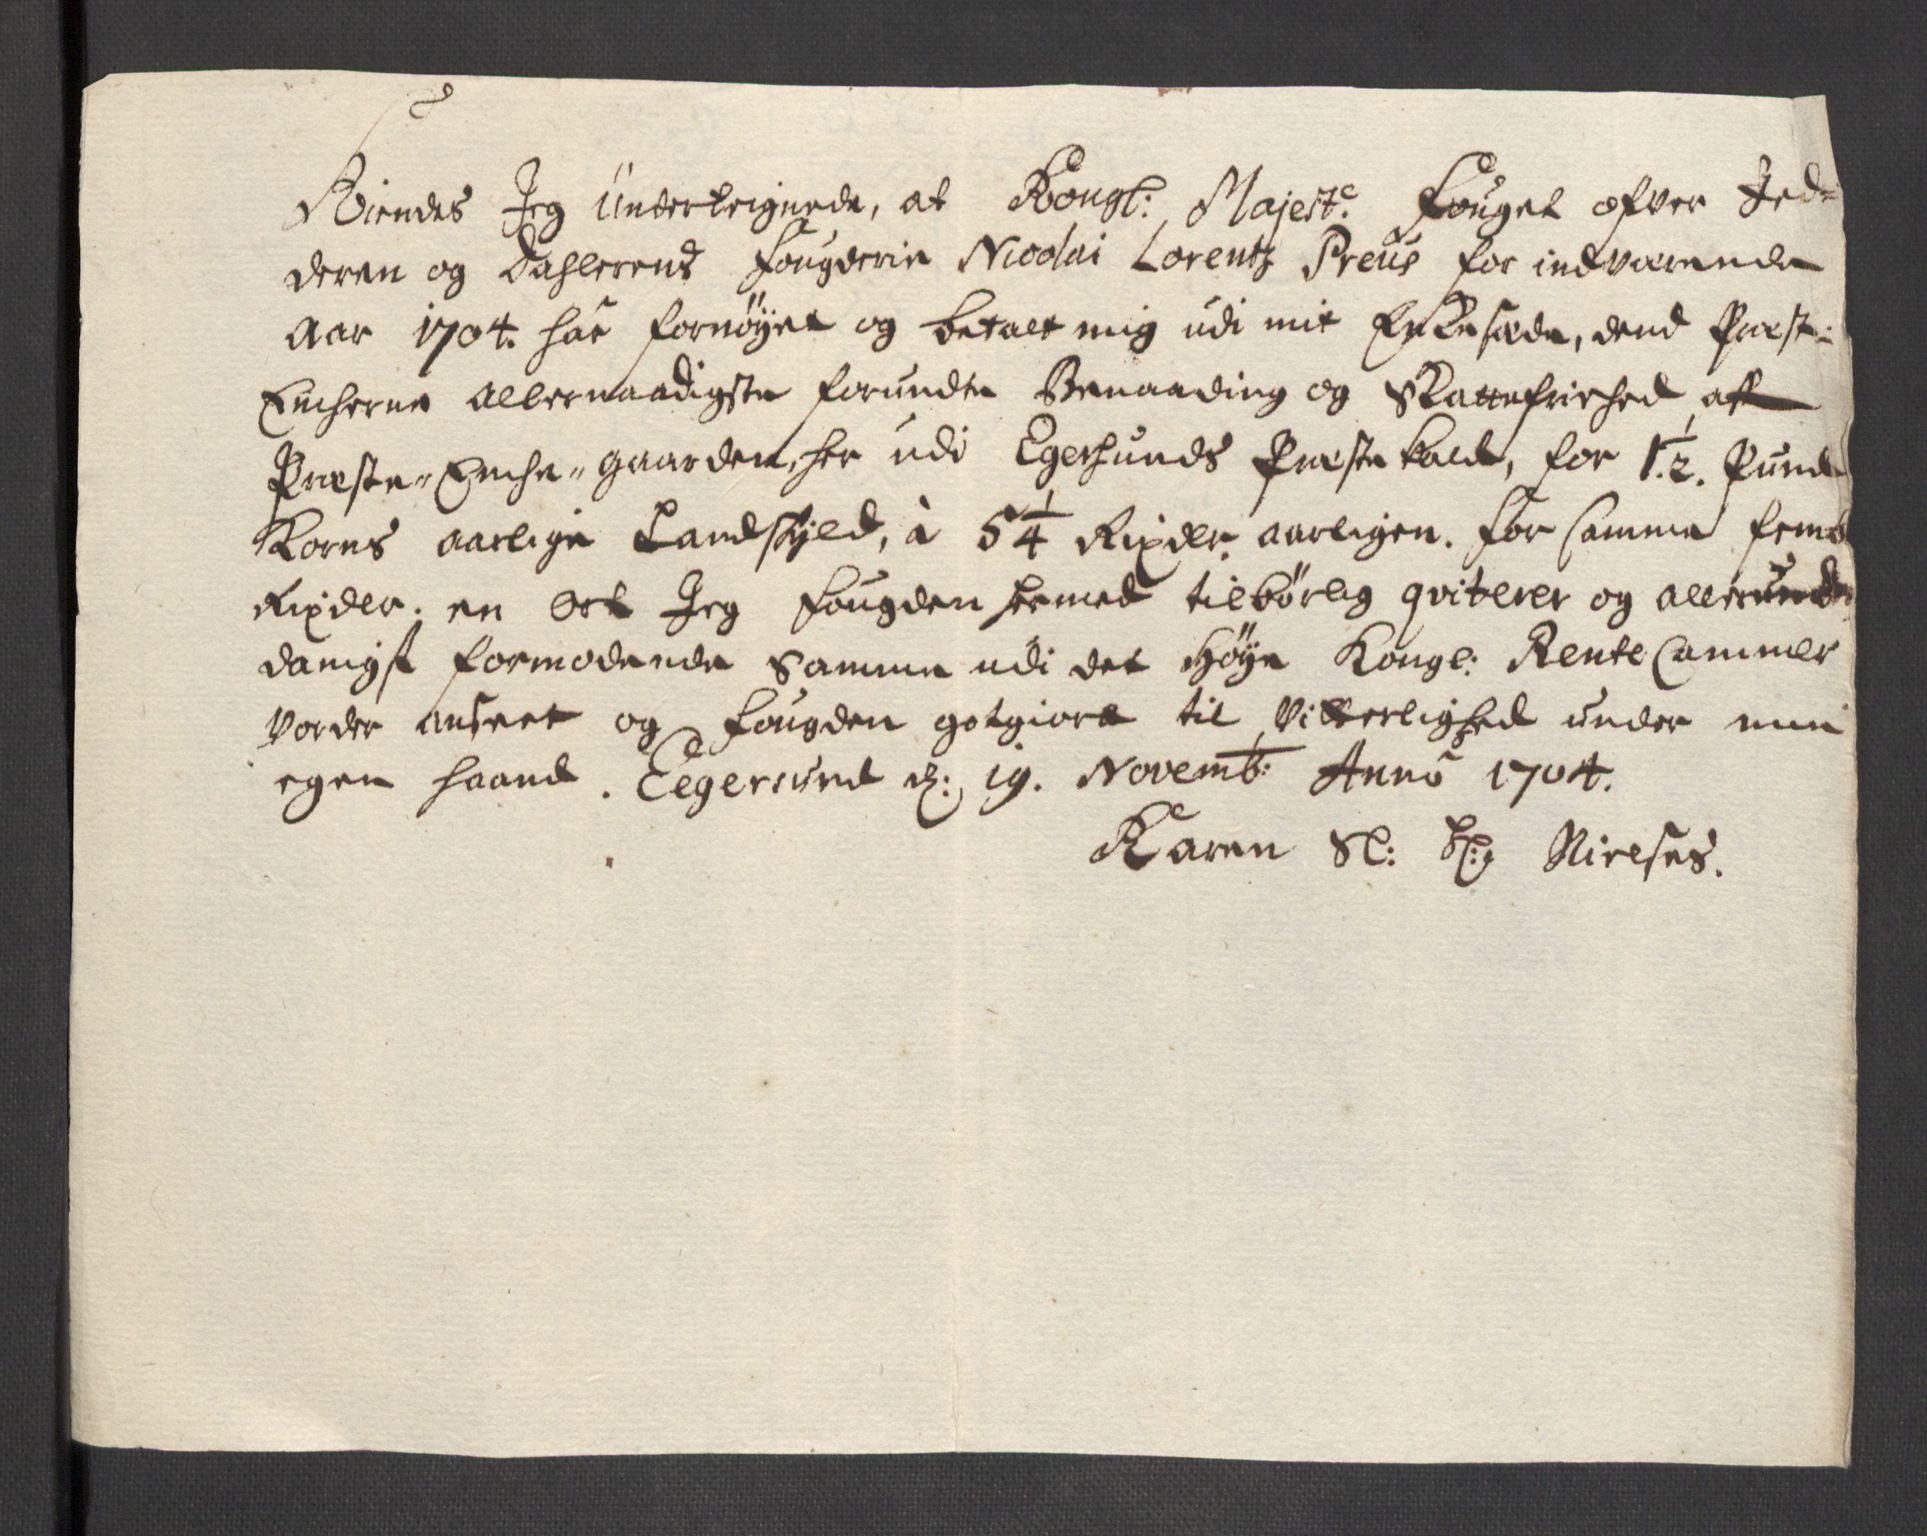 Kiendes Jeg Underteignede, at Kongl: Majestc. Fouget ofver Jed-
deren og Dahlerens Fougderie Nicolai Lorentz Preus for indværende
Aar 1704. har fornöyet og betalt mig udi mit Enkesæde, dend Præste-
Encherne allernaadigste forundte Benaading og Skattefriehed aff
Præste-Enche-gaarden, her udi Egersunds Præstekald, for 1 1/2. Pund
Korns aarlige Landskyld, à 5 1/4 Rixdlr. aarligen. For samme fem
Rixdlr. en Ort Jeg Fougden hermed tilbörlig qviterer og allerunder-
danigst formodende Samme udi det Höye Kongl: Rente Cammer
vorder anseet og Fougden gotgiort til Vitterlighed under min
egen Haand. Eegersund d: 19. Novemb: Anno 1704.
Karen Sl: Hr: Nielses.